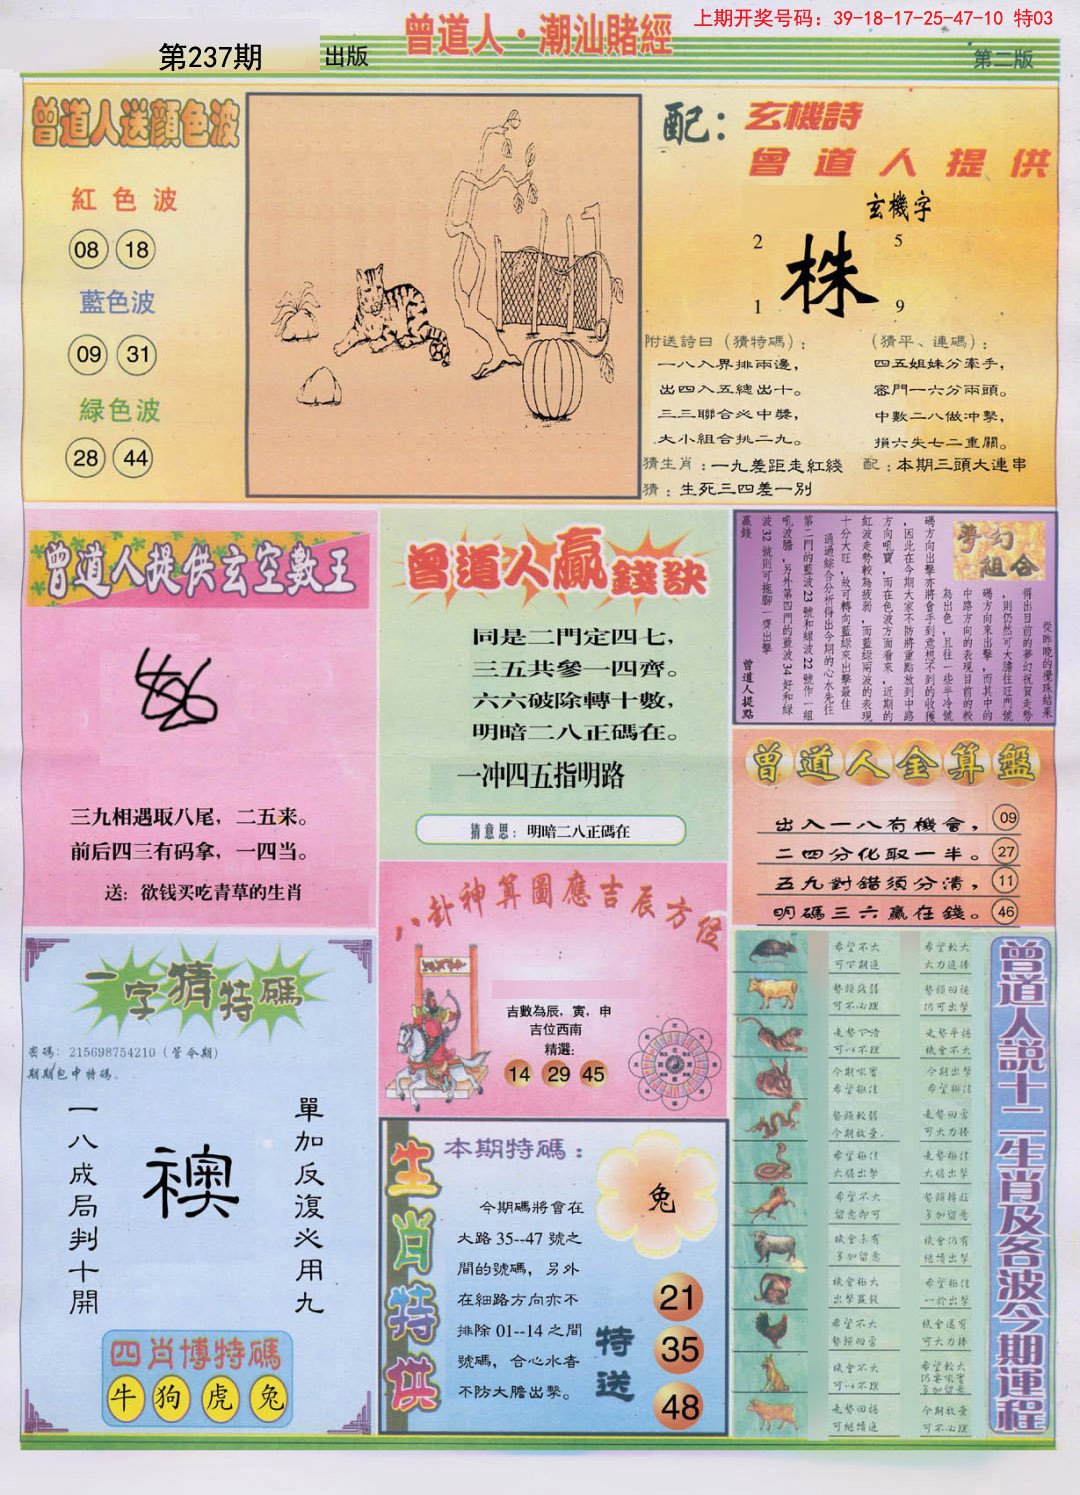 上期开奖号码：39-18-17-25-47-10 特03
曾道人·潮汕賭經
第237期
出版
第二版
曾道人送顏色波
紅色波
08 18
藍色波
09 31
緑色波
28 44
配：玄機詩
曾道人提供
玄機字
2 5
株
1 9
附送詩曰（猜特碼）：
一八入界排兩邊，
出四入五總出十。
三三聯合必中獎，
大小組合挑二九。
（猜平、連碼）：
四五姐妹分牽手，
容門一六分兩頭。
中數二八做冲擊，
損六失七二重關。
猜生肖：一九差距走紅綫
配：本期三頭大連串
猜：生死三四差一别
曾道人提供玄空數王
三九相遇取八尾，二五来。
前后四三有码拿，一四当。
送：欲钱买吃青草的生肖
曾道人贏錢訣
同是二門定四七，
三五共參一四齊。
六六破除轉十數，
明暗二八正碼在。
一冲四五指明路
猜意思：明暗二八正碼在
夢幻組合
從昨晚的攪珠結果
得出目前的夢幻祝賀走勢
，則仍然可大膽往旺門號
碼方向來出擊，而其中的
中路方向的表現目前的較
為出色，且往一些半冷號
碼方向出擊亦將會手到意想不到的收獲
，因此在今期大家不防將重點放到中路
方向吼寶，而在色波方面看來，近期的
紅波走勢較為疲弱，而藍緑兩波的表現
十分大旺，故可轉向藍緑來出擊最佳
通過綜合分析得出今期的心水先往
第二門的藍波23號和緑波22號作一組
吼波膽，另外第四門的藍波34好和緑
波32號則可拖腳一齊出擊
贏錢
曾道人提點
曾道人金算盤
出入一八有機會， 09
二四分化取一半。 27
五九對錯須分清， 11
明碼三六贏在錢。 46
八卦神算圖應吉辰方位
吉數為辰，寅，申
吉位西南
精選：
14 29 45
一字猜特碼
密碼：215698754210（管今期）
期期包中特碼、
一八成局判十開
襖
單加反復必用九
四肖博特碼
牛 狗 虎 兔
生肖特供
本期特碼：
今期碼將會在
大路35--47號之
間的號碼，另外
在細路方向亦不
排除01--14之間
號碼，合心水者
不防大膽出擊。
兔
特送
21
35
48
曾道人説十二生肖及各波今期運程
希望不大
可下期進
希望較大
大力進捧
可不必理
仍可出擊
機會不大
今期出擊
可大力捧
大膽出擊
希望不大
留意即可
多加留意
繼續出擊
出擊贏錢
一於出擊
希望不大
可大力捧
機會不大
希望較大
多加留意
可繼續進
今期放棄
可不必理